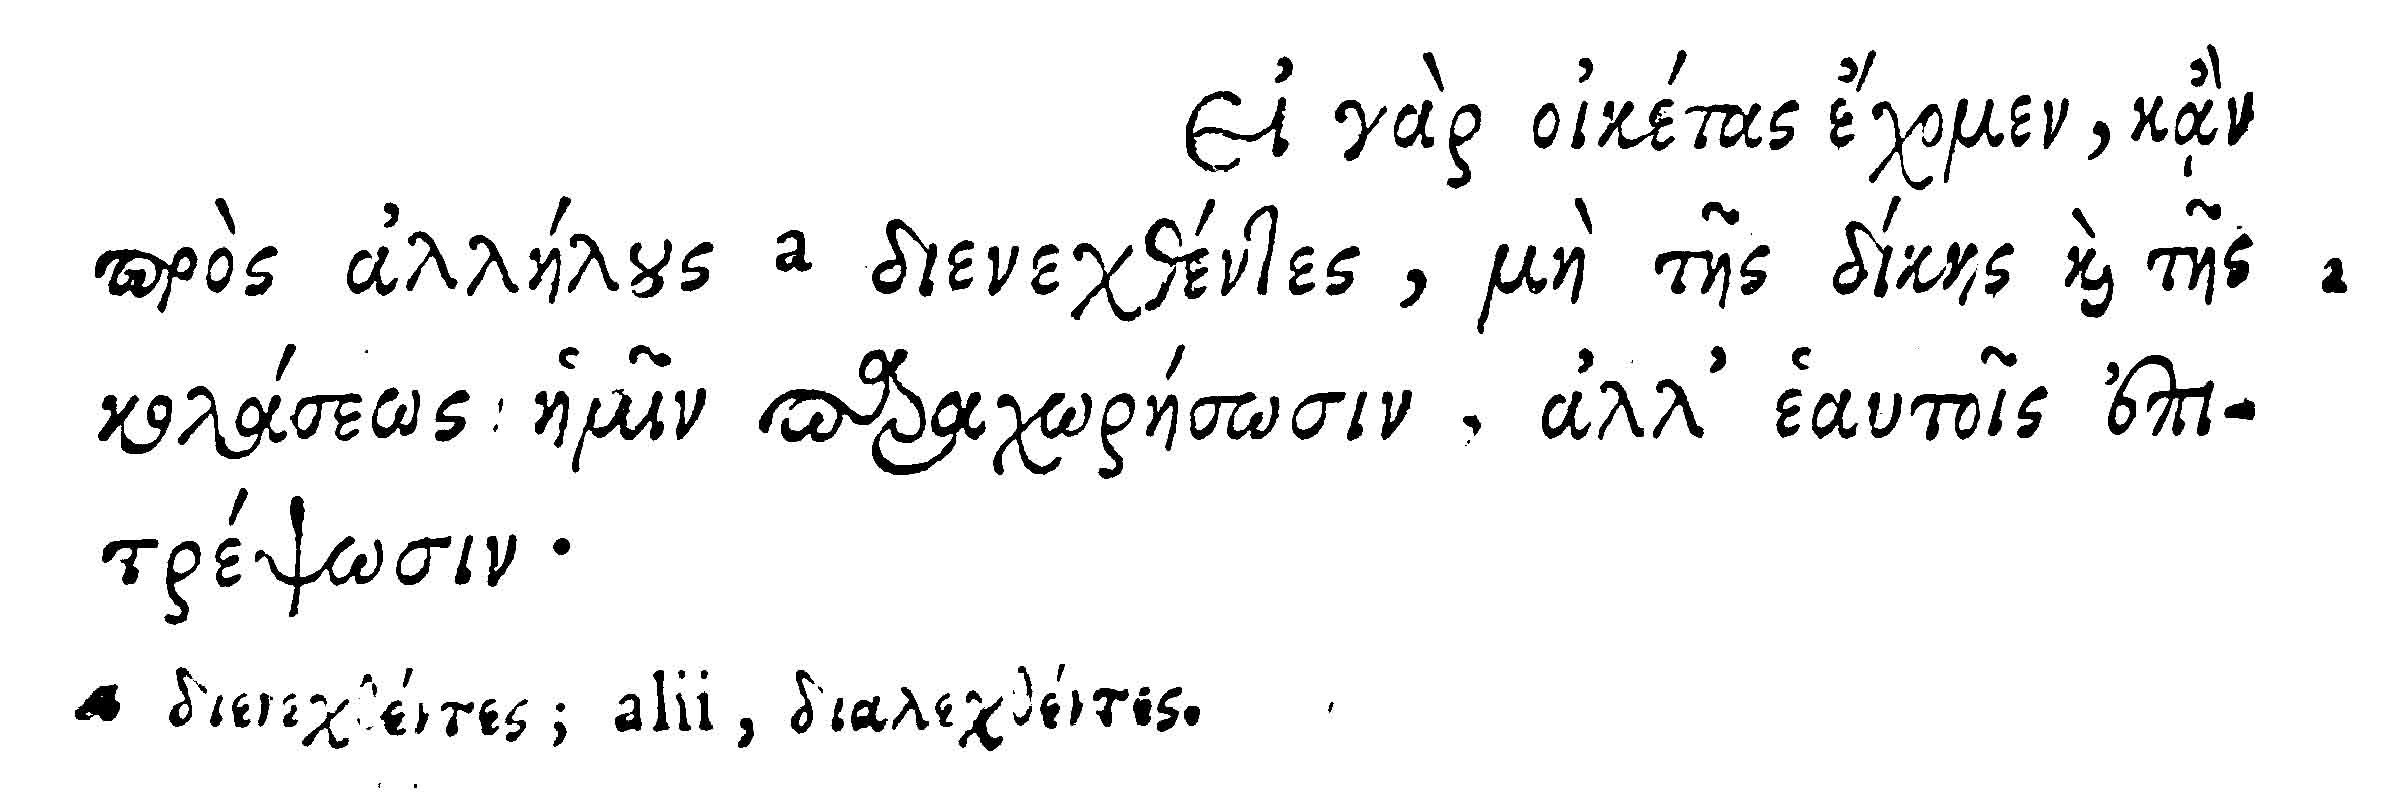 Εἰ γὰρ οἰκέτας ἔχομεν, κᾂν
πρὸς ἀλλήλȣς a διενεχθέντες, μὴ τῆς δίκης ϗ τῆς a
κολάσεως ἡμῖν παραχωρήσωσιν, ἀλλ' ἑαυτοῖς ἐπι-
τρέψωσιν.
a διενεχθέντες; alii, διαλεχθέντες.